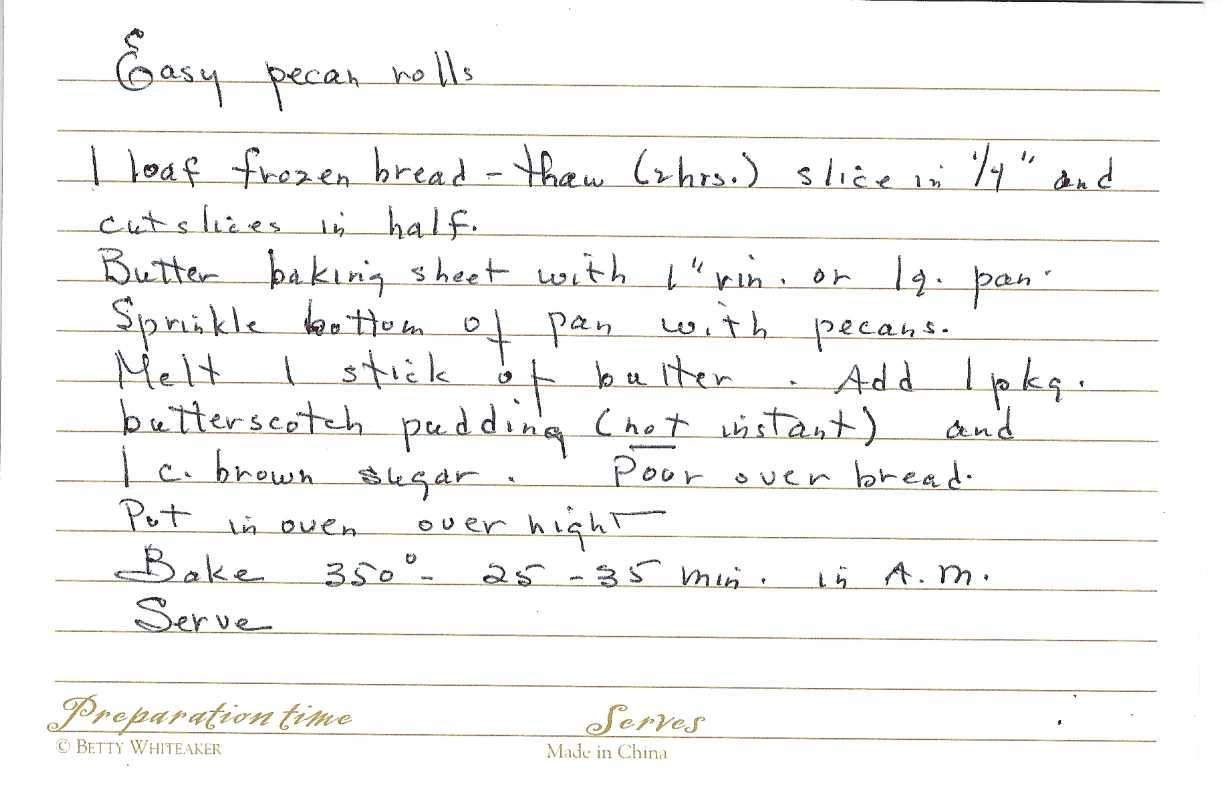 Easy pecan rolls
1 loaf frozen bread - thaw (2 hrs.) slice in 1/4" and
cut slices in half.
Butter baking sheet with 1" rin. or 1g. pan.
Sprinkle bottom of pan with pecans.
Melt 1 stick of butter. Add 1 pkg.
butterscotch pudding (not instant) and
1 c. brown sugar. Poor over bread.
Put in oven over night
Bake 350° - 25 - 35 min. in A.M.
Serve
Preparation time Serves
© BETTY WHITEAKER Made in China